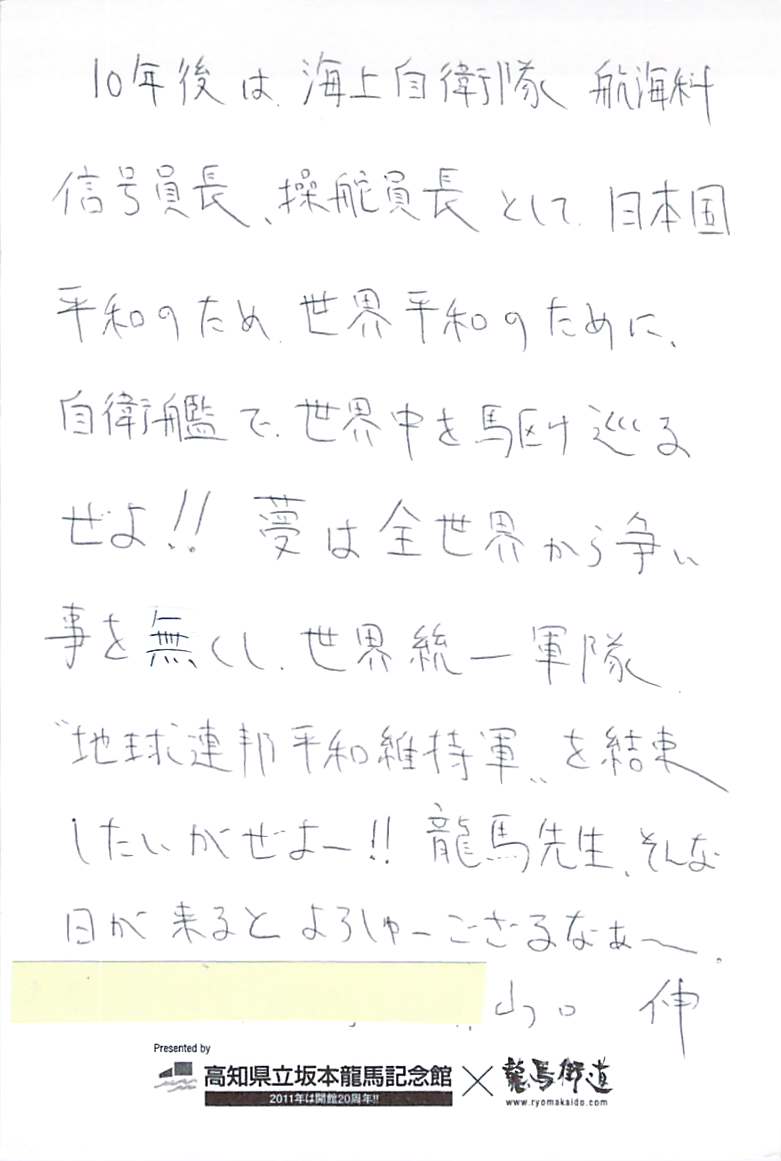 10年後は、海上自衛隊 航海科
信号員長、操舵員長として、日本国
平和のため、世界平和のために、
自衛艦で、世界中を馬駆け巡る
ぜよ!! 夢は全世界から争い
事を無くし、世界統一軍隊、
〝地球連邦平和維持軍〟を結束
したいがぜよー!! 龍馬先生、そんな
日が来るとよろしゅーござるなぁ〜。
山口 伸
Presented by
高知県立坂本龍馬記念館 × 龍馬街道
2011年は開館20周年!!
www.ryomakaido.com